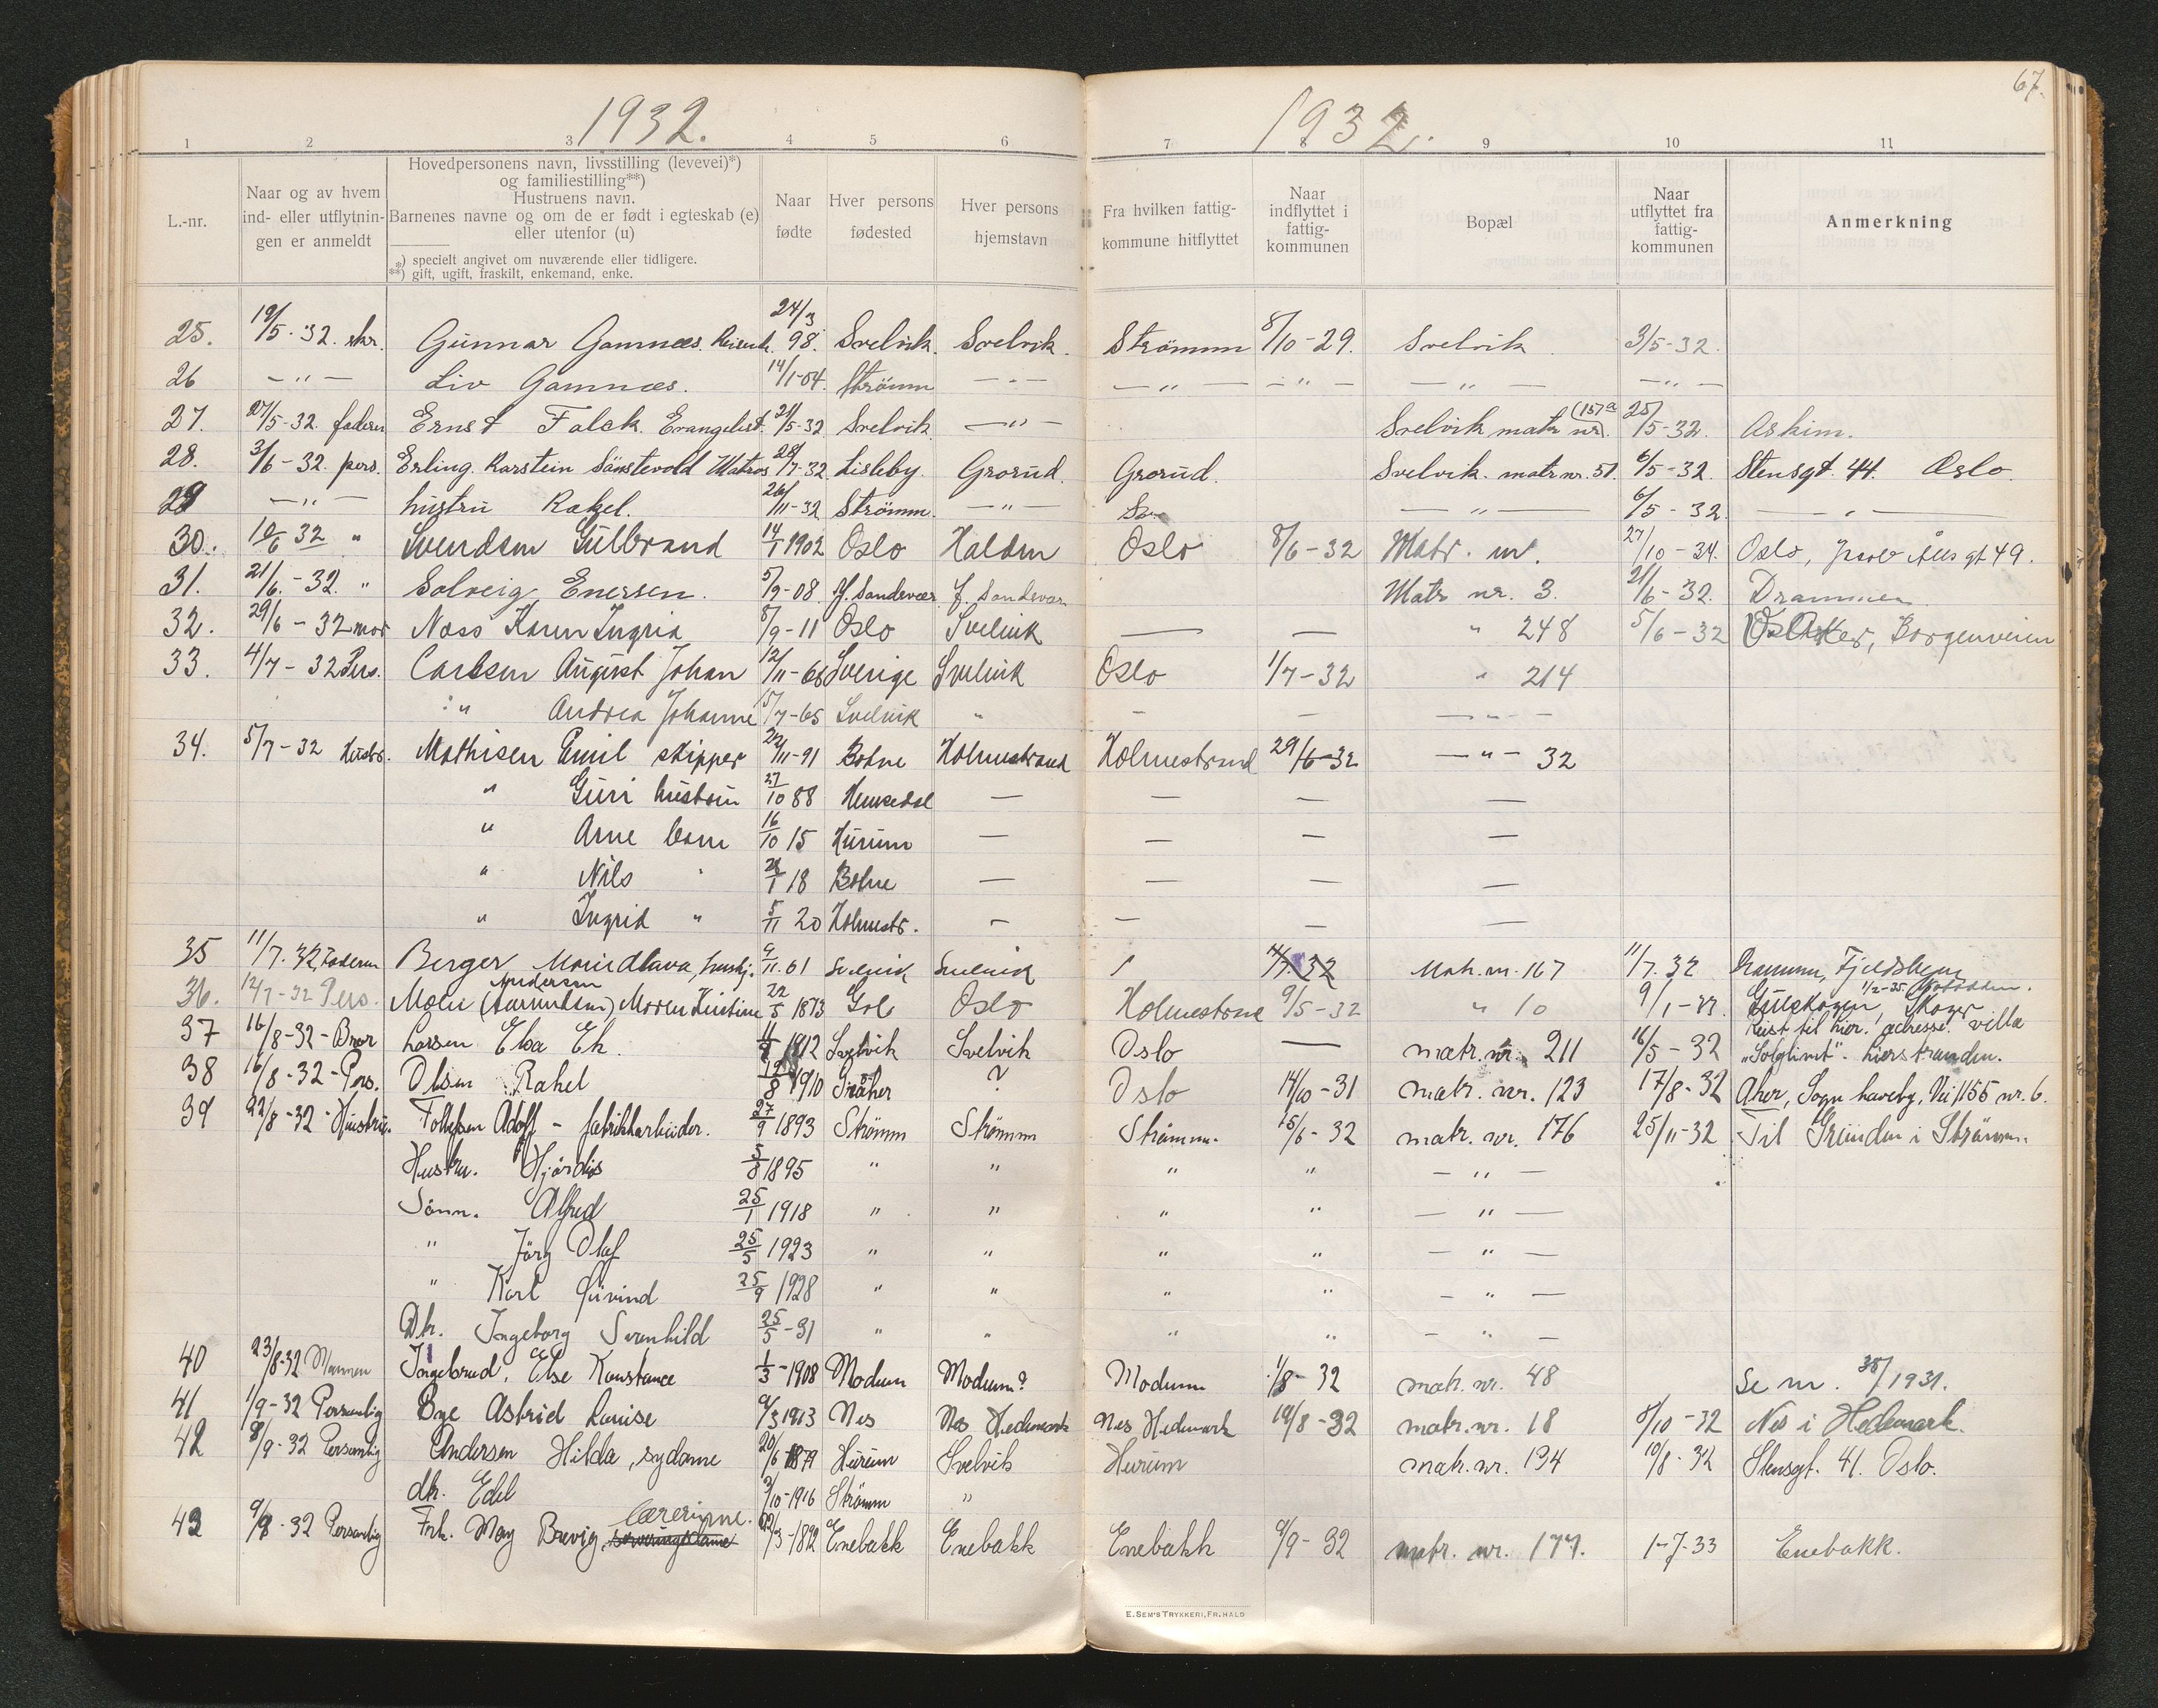 67.
1932. 1932.
1 2 3 4 5 6 7 8 9 10 11
L.-nr.
Naar og av hvem
ind- eller utflytnin-
gen er anmeldt
Hovedpersonens navn, livsstilling (levevei)*)
og familiestilling**)
Hustruens navn.
Barnenes navne og om de er født i egteskab (e)
eller utenfor (u)
*) specielt angivet om nuværende eller tidligere.
**) gift, ugift, fraskilt, enkemand, enke.
Naar
fødte
Hver persons
fødested
Hver persons
hjemstavn
Fra hvilken fattig-
kommune hitflyttet
Naar
indflyttet i
fattig-
kommunen
Bopæl
Naar
utflyttet fra
fattig-
kommunen
Anmerkning
25. 19/5-32. skr. Gunnar Gamnæs. 24/3 98. Svelvik. Svelvik. Strömm 8/10-29. Svelvik 3/5-32.
26 -"- Liv Gamnæs. 14/1-04. Strömm -"- -"- -"- -"- -"-
27. 27/5-32. faderen Ernst Falck. Evangelist. 21/5-32 Svelvik. -"- Svelvik matr nr. (157a 25/5-32. Askim.
28. 3/6-32. pers. Erling Karstein Matros 28/7-32 Lisleby. Grorud. Grorud. Svelvik. matr nr. 51. 6/5-32. Stensgt. 44. Oslo.
29 -"- hustru Rakel. 26/11-32 Strömm. -"- -"- 6/5-32. -"-
30. 10/6 32 " Svendsen Gulbrand 14/1 1902 Oslo Halden Oslo 8/6-32 Matr. nr. 27/10-34. Oslo, Jacob Ålls gt 49.
31. 21/6.-32. " Solveig Enersen. 5/9-08. Y. Sandsvær f. Sandsvær Matr nr. 3. 21/6-32. Drammen
32. 29/6-32 mor Næss Karen Ingrid 8/9-11 Oslo Svelvik — — " 248 5/6-32 Borgenveien
33. 4/7-32 Pers. Carlsen August Johan 12/11-68 Sverige Svelvik Oslo 1/7-32 " 214
" Andrea Johanne 5/7-65 Svelvik " - - -"-
34. 5/7-32 Hustr. Mathisen Emil skipper 22/11-91 Botne Holmestrand Holmestrand 29/6-32 -"- 32
" Guri hustru 27/10 88 Hemsedal — — — —
" Arne barn 16/10 15 Hurum — — — —
" Nils " 18 Botne — — — —
" Ingrid " 5/11 20 Holmestr. — — — —
35 11/7.32, Faderen Berger 9/11.61 Svelvik Svelvik Matr. nr. 167 11/7.32 Drammen, Fjeldsbyen
Andersen 1/2-35
36. 12/7-32 Pers. Moen Kristine 22/5 1873 Gol Oslo Holmestrand 9/5-32 " 10 Gulskogen, Skoger
37 16/8-32-Bror Larsen Elsa Ek. 1912 Svelvik Svelvik Oslo — matr. nr. 211 16/5-32 Reist til hier. adresse: villa
"Solglimt". Lierstranden.
38 16/8-32-Pers. Olsen Rakel 1910 ? Oslo 14/10-31 matr. nr. 123 17/8-32 Aker, Sogn haveby, Vei 1155 nr. 6.
39 22/8-32-Hustru. Follesen Adolf - fabrikkarbeider. 27/9 1893 Strömm Strömm Strömm. 15/6-32 matr. nr. 176 25/11-32 Til Grunden i Strömm.
Hustru. Hjördis 5/8 1895 " " " " -"-
Sönn. Alfred 25/1 1918 " " " " -"-
" Olaf 25/5 1923 " " " " -"-
" Karl Öivind 25/9 1928 " " " " -"-
Dtr. Ingeborg Svanhild 25/5-31 " " " " -"-
40 23/8-32 Mannen Ingebrud, Else Konstance 1/3-1908 Modum Modum? Modum 1/8-32 matr. nr. 48 Se nr. 38/1931.
41 1/9-32 Personlig Bye Astrid Louise 9/3 1913 Nes Nes Hedemark Nes Hedemark 19/8-32 matr. nr. 18 5/10-32 Nes i Hedemark.
42 8/9-32 Personlig Andersen Hilda, sydame 20/6 1879 Hurum Svelvik Hurum matr. nr. 134 10/8-32 Stensgt. 41. Oslo.
dtr. Edel 2/10-1916 Strömm "
lærerinne.
43 9/9-32 Personlig Frk. May Brevig, serveringsdame /3-1892 Enebakk Enebakk Enebakk 9/9-32 matr. nr. 177. 1-7-33 Enebakk.
E. SEM'S TRYKKERI, FR.HALD